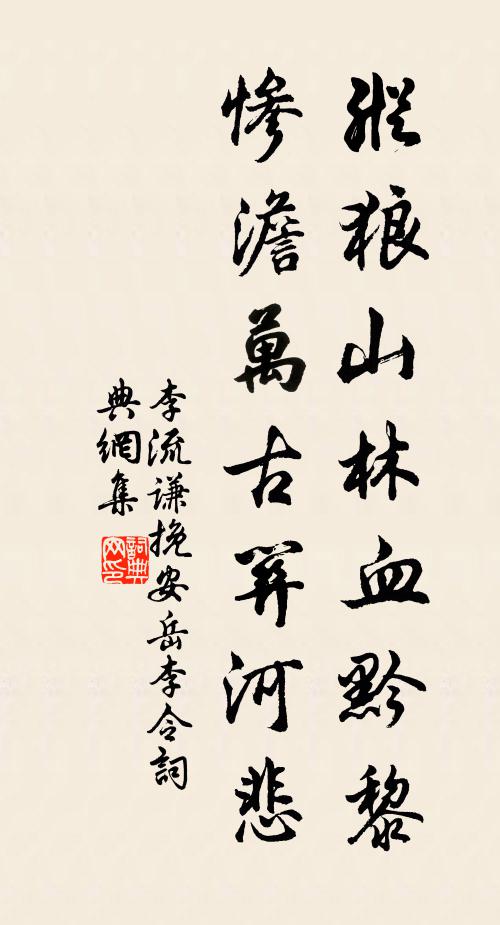 猔狼山林血黔黎
慘澹萬古關河悲
李流谦挽安岳李令詞
典網集
詞典网印